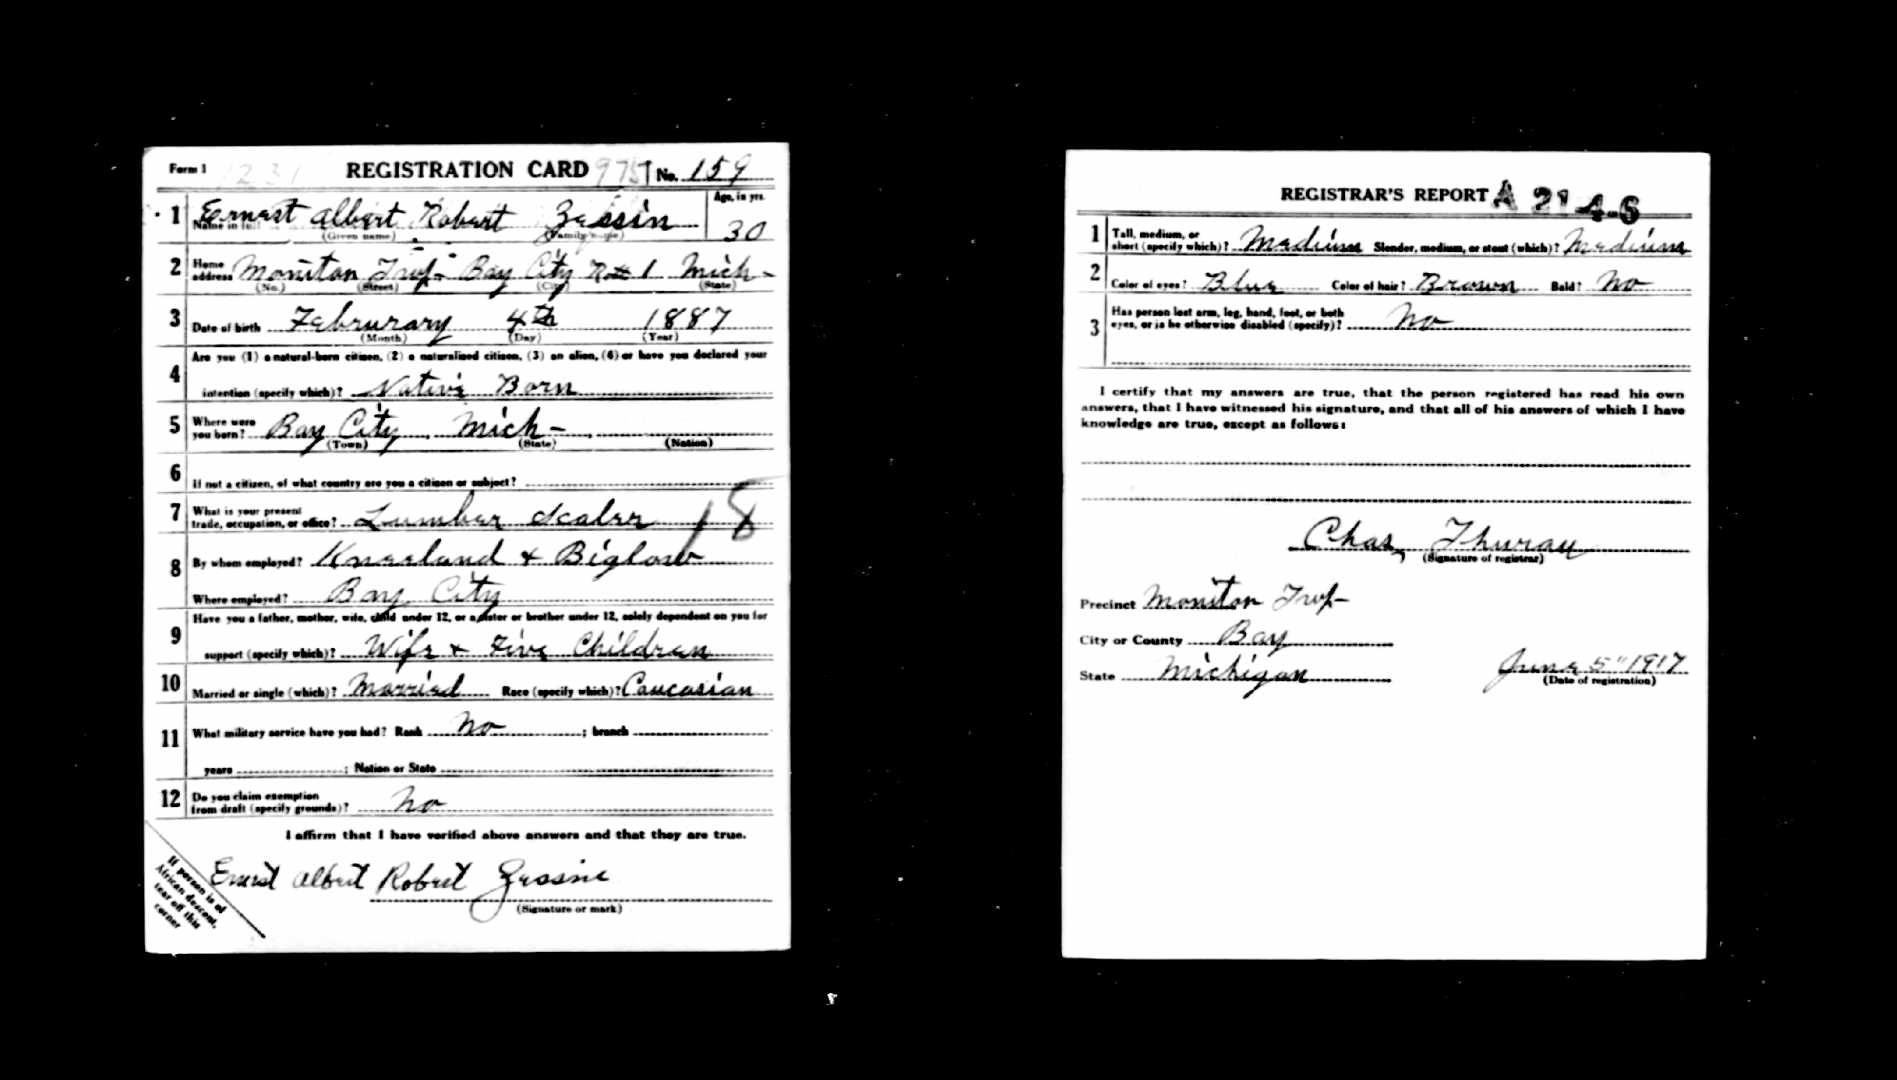 Form 1 1231 REGISTRATION CARD 975 No. 159
1 Name in full Ernest Albert Robert Zessin Age, in yrs. 30
(Given name) (Family name)
2 Home address Moniton Twp- Bay City R#1 Mich-
(No.) (Street) (City) (State)
3 Date of birth Februrary 4th 1887
(Month) (Day) (Year)
4 Are you (1) a natural-born citizen, (2) a naturalized citizen, (3) an alien, (4) or have you declared your
intention (specify which)? Native Born
5 Where were you born? Bay City, Mich-
(Town) (State) (Nation)
6 If not a citizen, of what country are you a citizen or subject?
7 What is your present trade, occupation, or office? Lumber Scaler 18
8 By whom employed? Kneeland + Biglow
Where employed? Bay City
9 Have you a father, mother, wife, child under 12, or a sister or brother under 12, solely dependent on you for
support (specify which)? Wife + Five Children
10 Married or single (which)? Married Race (specify which)? Caucasian
11 What military service have you had? Rank No ; branch
years ; Nation or State
12 Do you claim exemption from draft (specify grounds)? No
I affirm that I have verified above answers and that they are true.
Ernest Albert Robert Zessine
(Signature or mark)
If person is of
African descent,
tear off this
corner
REGISTRAR'S REPORT A 21 4-6
1 Tall, medium, or short (specify which)? Medium Slender, medium, or stout (which)? Medium
2 Color of eyes? Blue Color of hair? Brown Bald? No
3 Has person lost arm, leg, hand, foot, or both
eyes, or is he otherwise disabled (specify)? No
I certify that my answers are true, that the person registered has read his own
answers, that I have witnessed his signature, and that all of his answers of which I have
knowledge are true, except as follows:
Chas, Thurau
(Signature of registrar)
Precinct Moniton Twp-
City or County Bay
State Michigan June 5" 1917
(Date of registration)